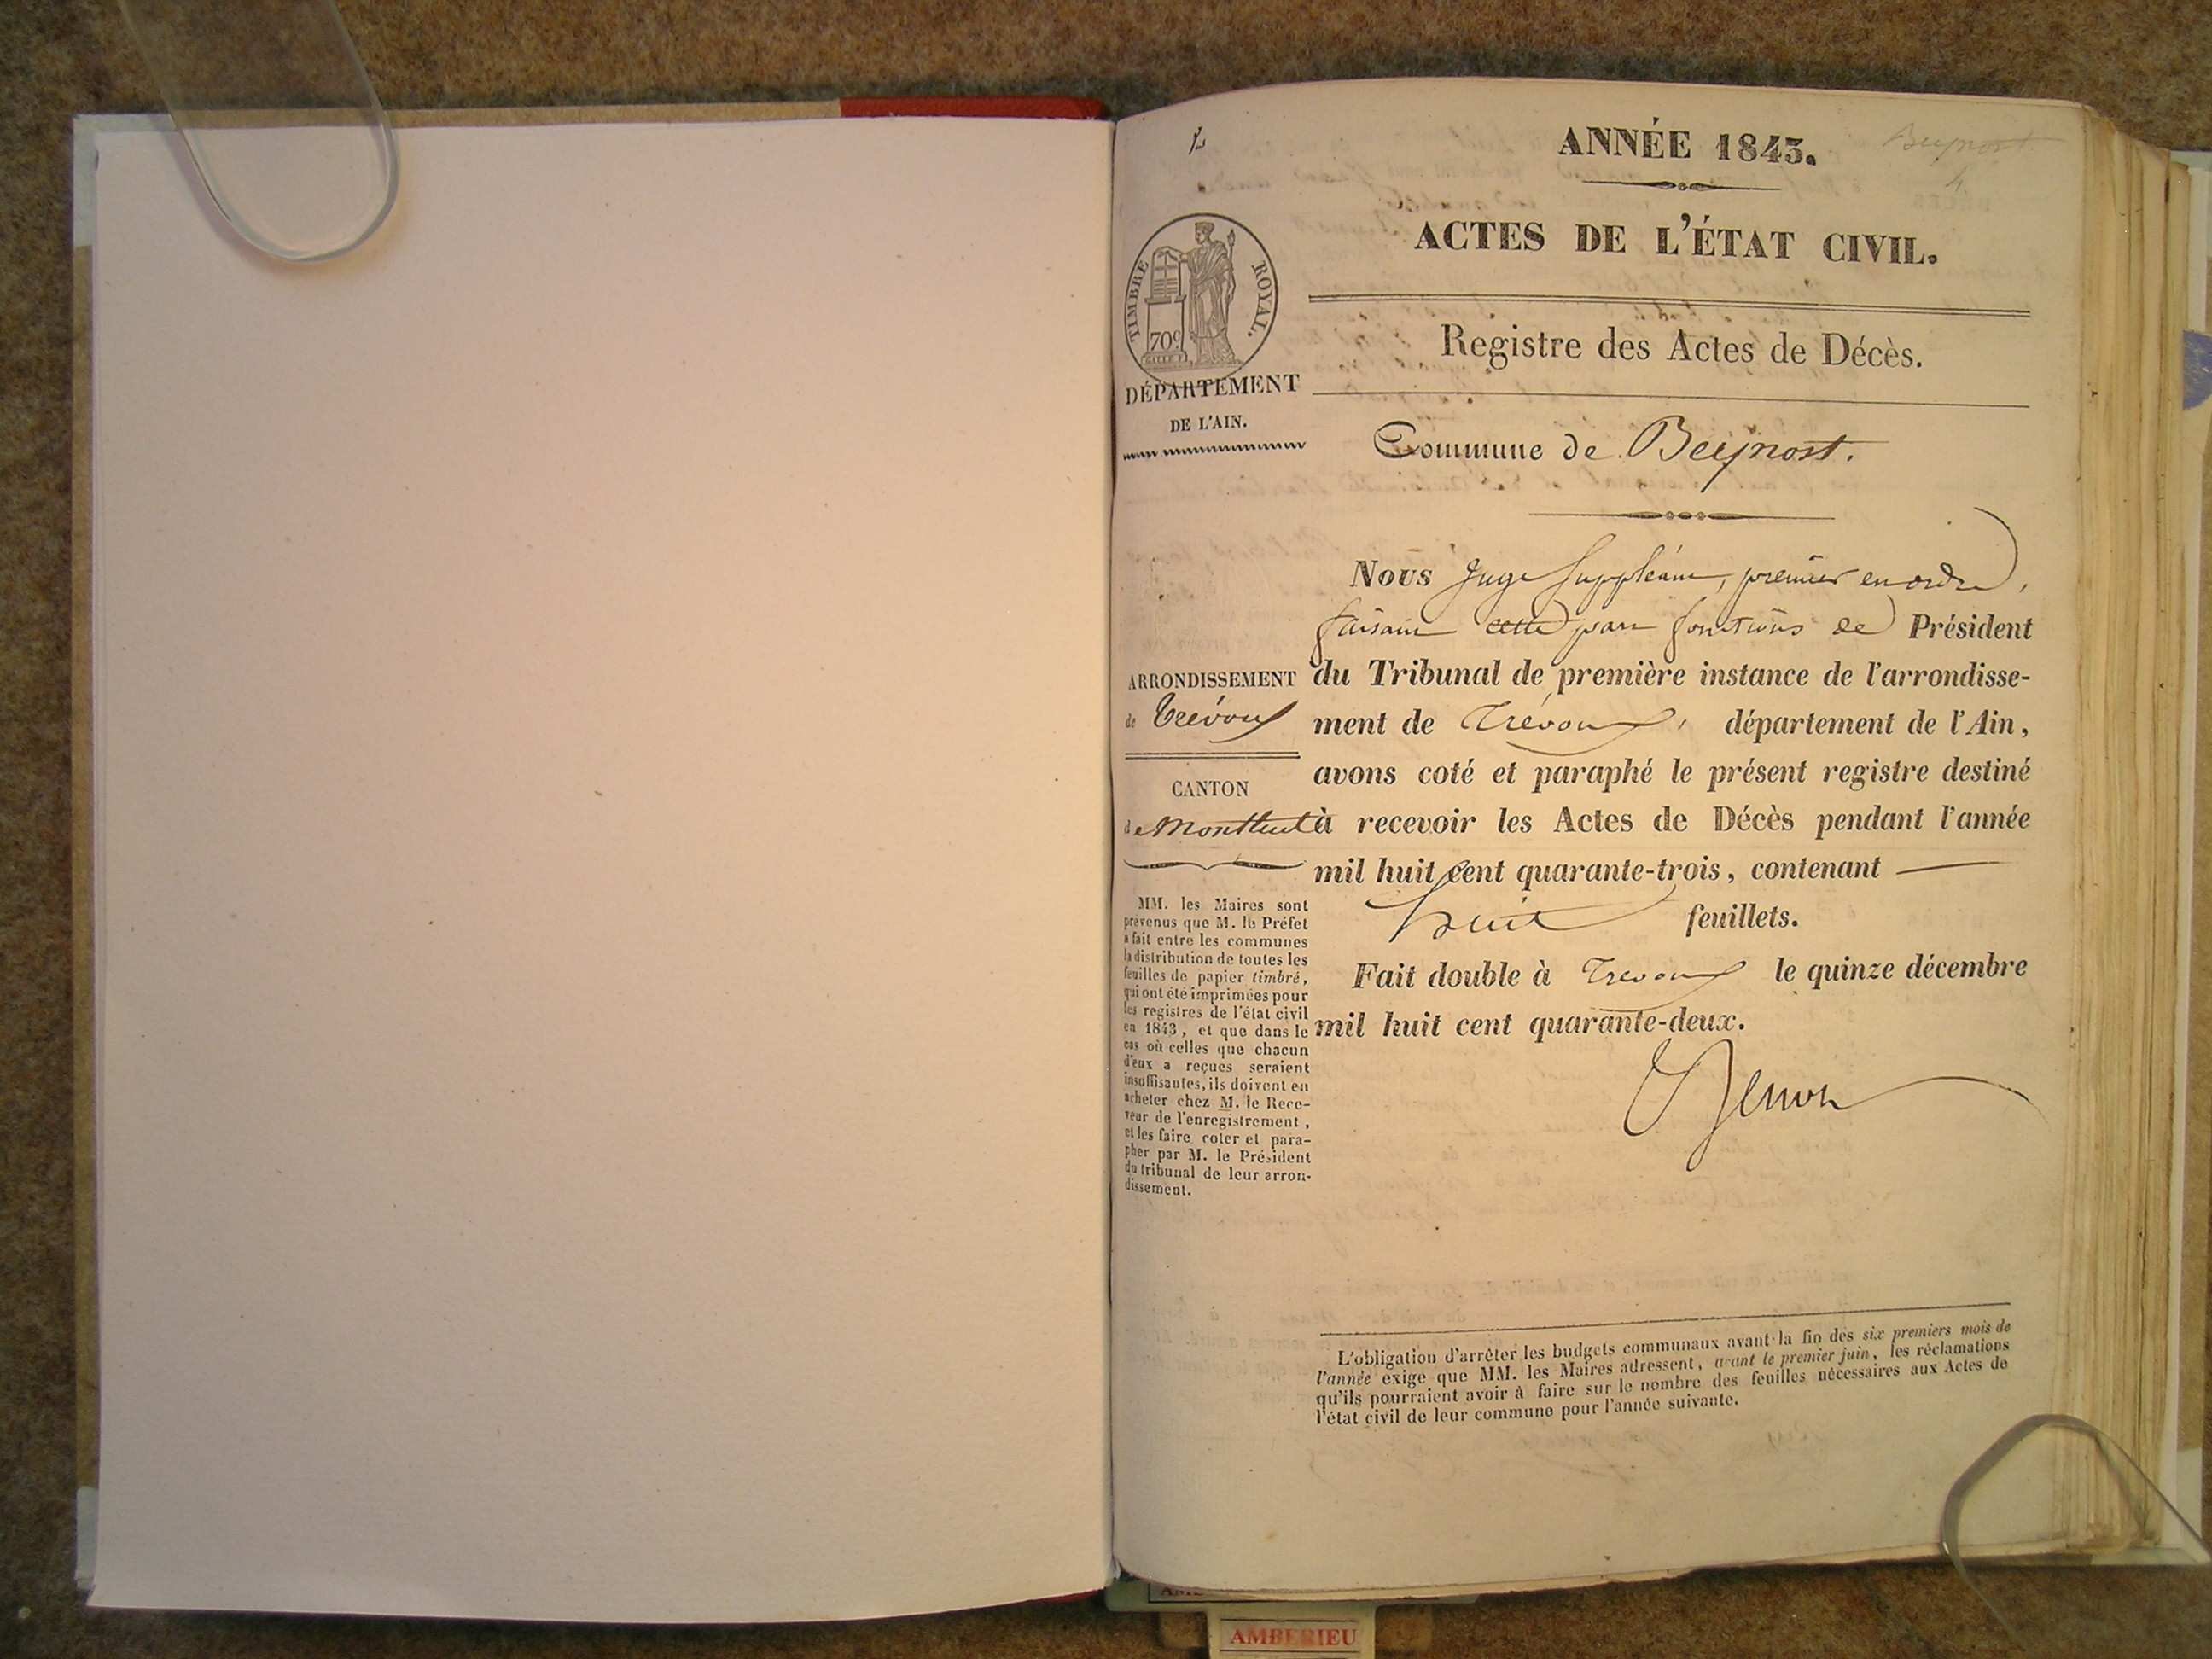 ANNÉE 1843.
Beynost
ACTES DE L'ÉTAT CIVIL.
TIMBRE ROYAL.
70c
DÉPARTEMENT
DE L'AIN.
Registre des Actes de Décès.
Commune de Beynost.
ARRONDISSEMENT
de Trévoux
CANTON
de Montluel
MM. les Maires sont
prévenus que M. le Préfet
a fait entre les communes
la distribution de toutes les
feuilles de papier timbré,
qui ont été imprimées pour
les registres de l'état civil
en 1843, et que dans le
cas où celles que chacun
d'eux a reçues seraient
insuffisantes, ils doivent en
acheter chez M. le Rece-
veur de l'enregistrement,
et les faire coter et para-
pher par M. le Président
du tribunal de leur arron-
dissement.
Nous Juge Suppléant, premier en ordre,
faisant fonctions de Président
du Tribunal de première instance de l'arrondisse-
ment de Trévoux, département de l'Ain,
avons coté et paraphé le présent registre destiné
à recevoir les Actes de Décès pendant l'année
mil huit cent quarante-trois, contenant
huit feuillets.
Fait double à Trevoux le quinze décembre
mil huit cent quarante-deux.
L'obligation d'arrêter les budgets communaux avant la fin des six premiers mois de
l'année exige que MM. les Maires adressent, avant le premier juin, les réclamations
qu'ils pourraient avoir à faire sur le nombre des feuilles nécessaires aux Actes de
l'état civil de leur commune pour l'année suivante.
AMBERIEU